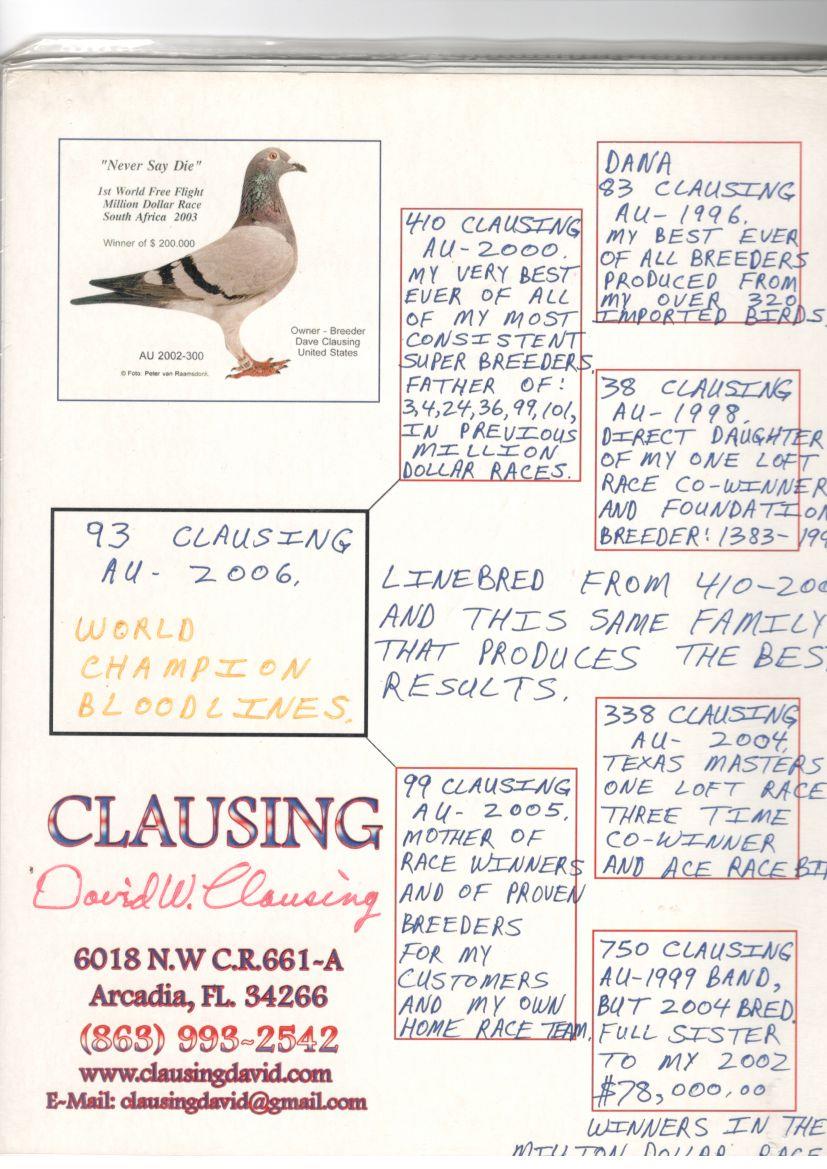 "Never Say Die"
1st World Free Flight
Million Dollar Race
South Africa 2003
Winner of $ 200.000
Owner - Breeder
Dave Clausing
United States
AU 2002-300
© Foto: Peter van Raamsdonk.
410 CLAUSING
AU-2000.
MY VERY BEST
EVER OF ALL
OF MY MOST
CONSISTENT
SUPER BREEDERS.
FATHER OF:
3,4,24,36,99,101,
IN PREVIOUS
MILLION
DOLLAR RACES.
DANA
83 CLAUSING
AU-1996.
MY BEST EVER
OF ALL BREEDERS
PRODUCED FROM
MY OVER 320
IMPORTED BIRDS.
38 CLAUSING
AU-1998.
DIRECT DAUGHTER
OF MY ONE LOFT
RACE CO-WINNER
AND FOUNDATION
BREEDER! 1383-199
93 CLAUSING
AU-2006.
WORLD
CHAMPION
BLOODLINES.
LINEBRED FROM 410-200
AND THIS SAME FAMILY
THAT PRODUCES THE BEST
RESULTS.
338 CLAUSING
AU-2004.
TEXAS MASTERS
ONE LOFT RACE
THREE TIME
CO-WINNER
AND ACE RACE BI
99 CLAUSING
AU-2005.
MOTHER OF
RACE WINNERS
AND OF PROVEN
BREEDERS
FOR MY
CUSTOMERS
AND MY OWN
HOME RACE TEAM.
750 CLAUSING
AU-1999 BAND,
BUT 2004 BRED.
FULL SISTER
TO MY 2002
$78,000.00
WINNERS IN THE
MILLION DOLLAR RACE
CLAUSING
David W. Clausing
6018 N.W C.R.661~A
Arcadia, FL. 34266
(863) 993~2542
www.clausingdavid.com
E~Mail: clausingdavid@gmail.com